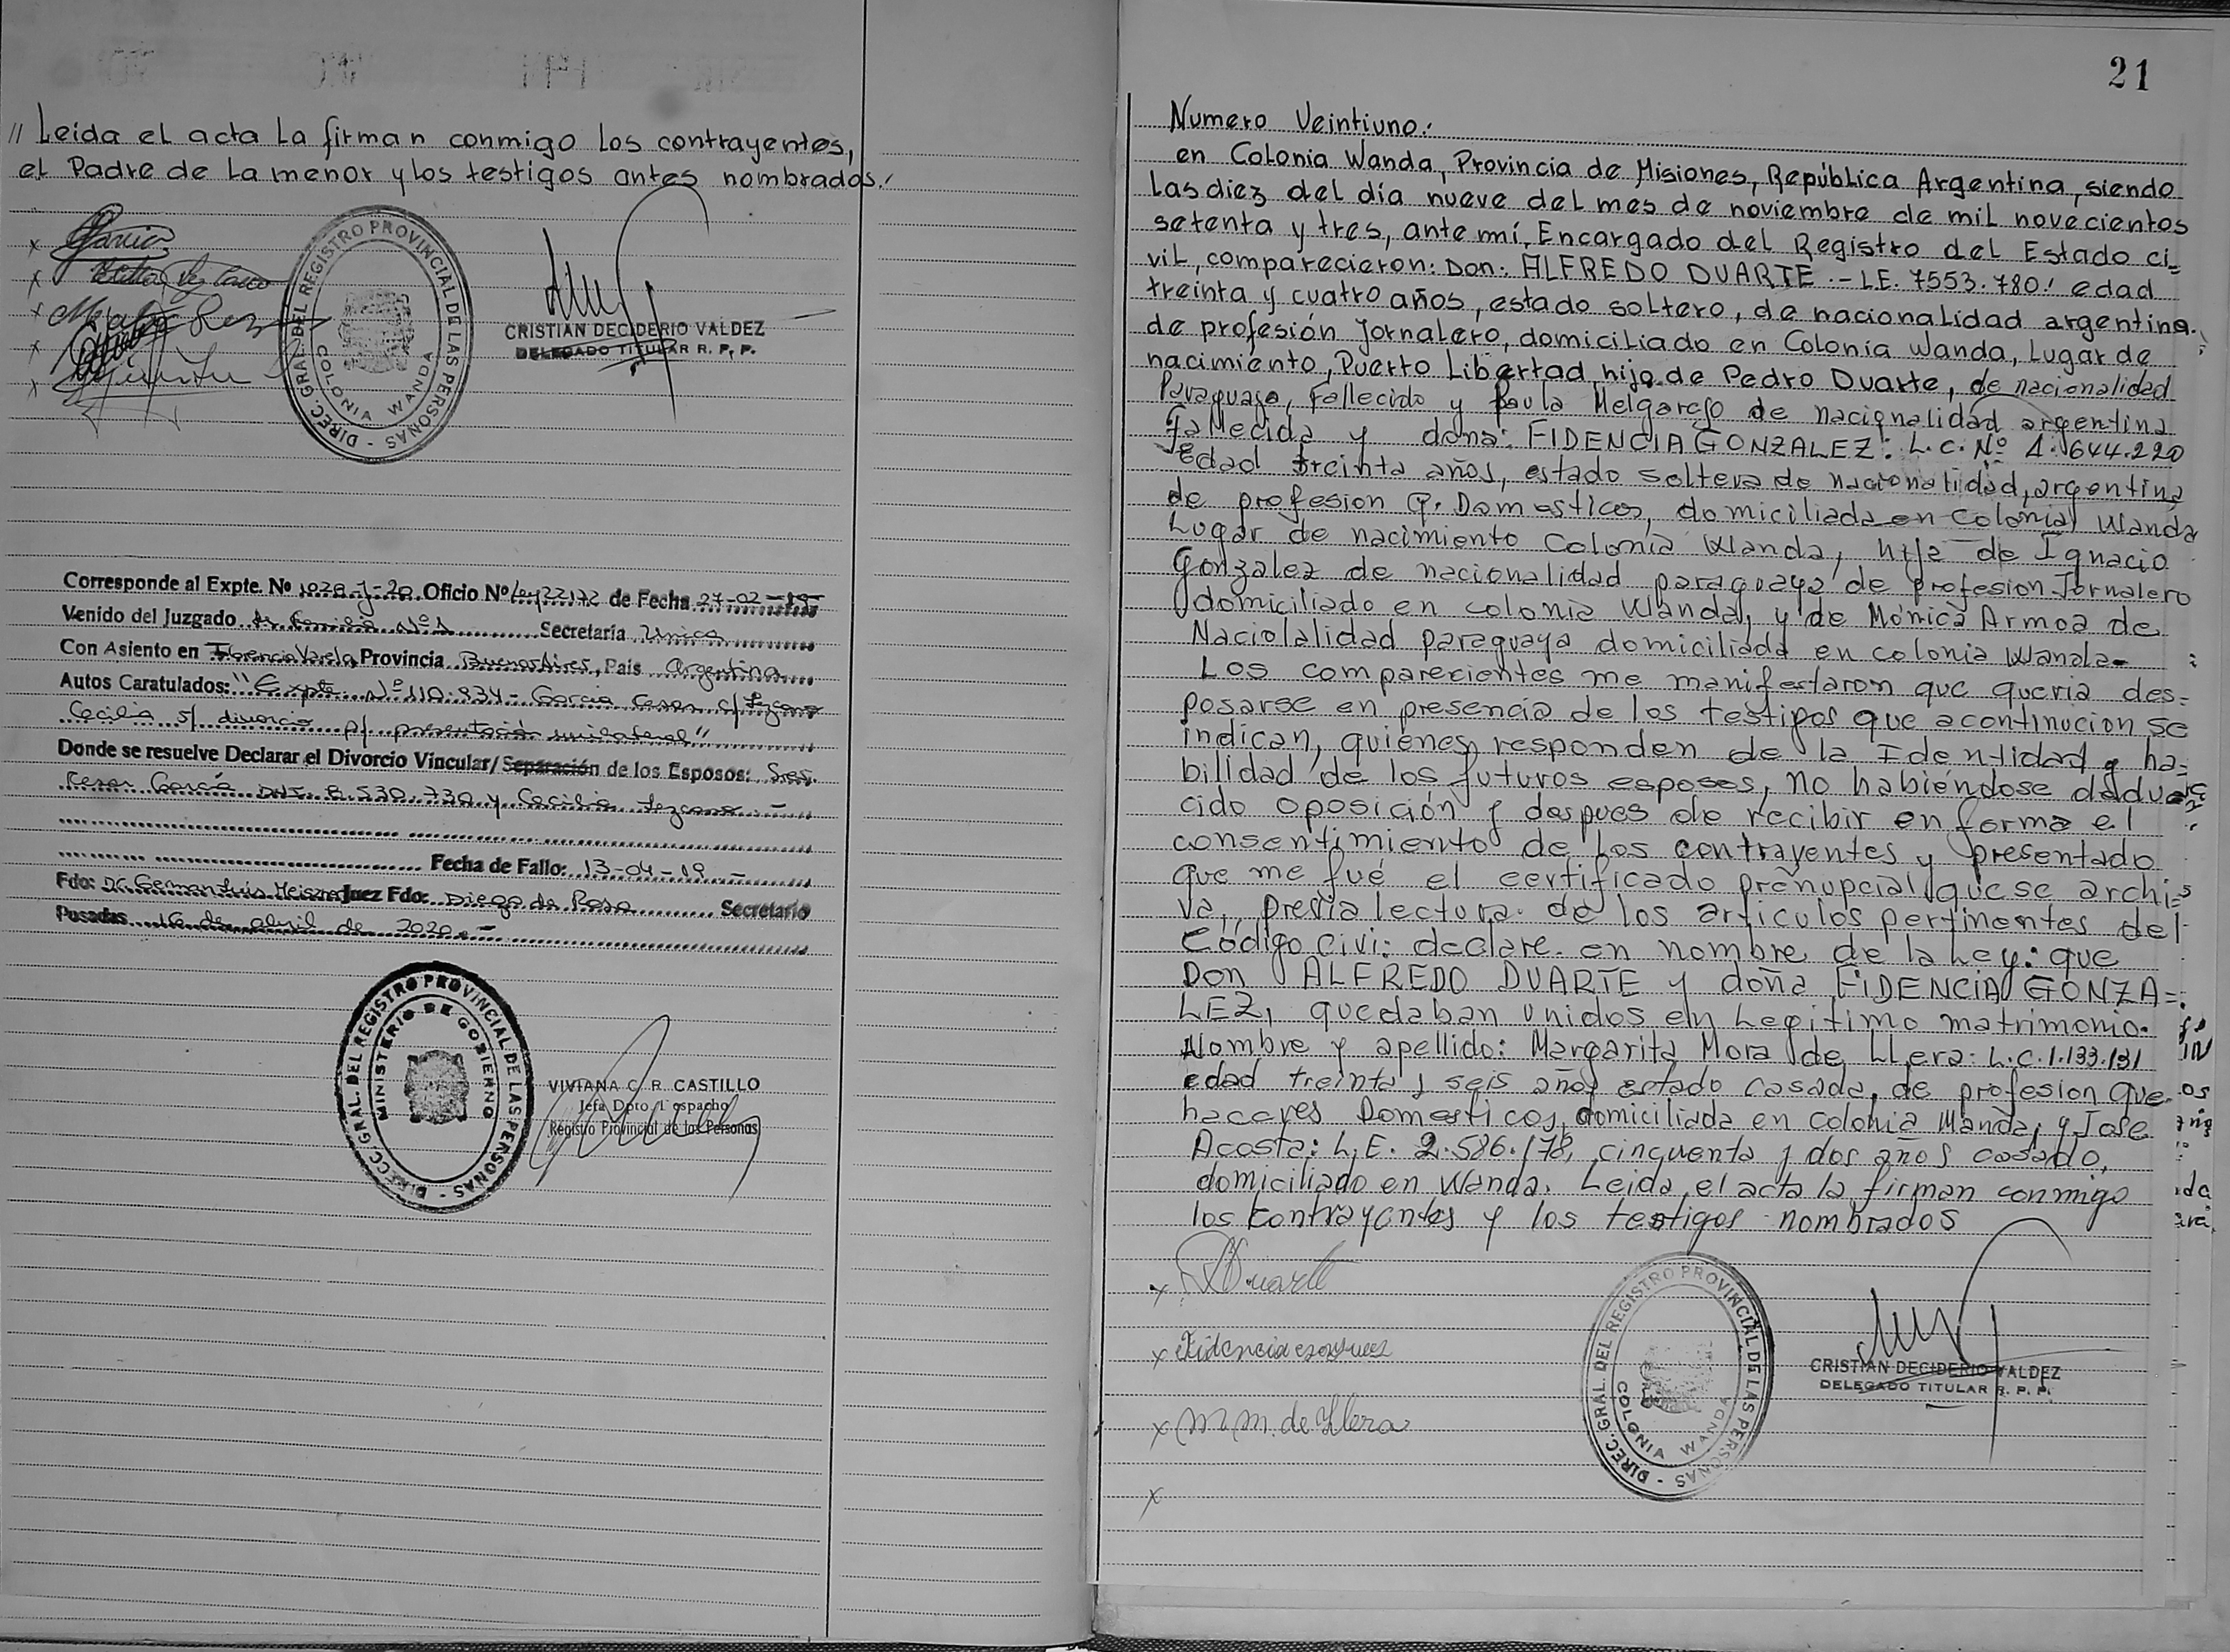 // Leida el acta la firman conmigo los contrayentes,
el Padre de la menor y los testigos antes nombrados.
x Garcia
x
x
x
x
DIREC. GRAL. DEL REGISTRO PROVINCIAL DE LAS PERSONAS -
COLONIA WANDA
CRISTIAN DECIDERIO VALDEZ
DELEGADO TITULAR R. P. P.
Corresponde al Expte. Nº 1028-J-20 Oficio Nº Ley 22172 de Fecha 27-02-
Venido del Juzgado de Familia Nº 1 Secretaría Unica
Con Asiento en Florencio Varela Provincia Buenos Aires, País Argentina
Autos Caratulados: "Expte Nº 110.934 - Garcia Cesar c/ Lezcano
Cecilia s/ divorcio p/ presentación unilateral"
Donde se resuelve Declarar el Divorcio Vincular/Separación de los Esposos: Sres.
Cesar García DNI. 8.530.730 y Cecilia Lezcano.-
Fecha de Fallo: 13-04-19.-
Fdo: Dr. German Luis Juez Fdo: Diego de Rosa Secretario
Posadas 16 de abril de 2020.-
DIRECC. GRAL. DEL REGISTRO PROVINCIAL DE LAS PERSONAS -
MINISTERIO DE GOBIERNO
VIVIANA C. R. CASTILLO
Jefa Dpto. Despacho
Registro Provincial de las Personas
21
Numero Veintiuno.
en Colonia Wanda, Provincia de Misiones, República Argentina, siendo
las diez del día nueve del mes de noviembre de mil novecientos
setenta y tres, ante mí, Encargado del Registro del Estado ci=
vil, comparecieron: Don: ALFREDO DUARTE.- LE. 7553.780. edad
treinta y cuatro años, estado soltero, de nacionalidad argentina.
de profesión Jornalero, domiciliado en Colonia Wanda, Lugar de
nacimiento, Puerto Libertad, hijo de Pedro Duarte, de nacionalidad
Paraguaya, Fallecido y Paula Melgarejo de nacionalidad argentina
fallecida y doña: FIDENCIA GONZALEZ: L.C. Nº 1.644.220
Edad treinta años, estado soltera de nacionalidad, argentina
de profesion Q. Domesticos, domiciliada en Colonia Wanda
Lugar de nacimiento Colonia Wanda, hija de Ignacio
Gonzalez de nacionalidad paraguaya de profesion Jornalero
domiciliado en colonia Wanda, y de Mónica Armoa de
Naciolalidad paraguaya domiciliada en colonia Wanda-
Los comparecientes me manifestaron que queria des=
posarse en presencia de los testigos que acontinucion se
indican, quienes responden de la Identidad y ha=
bilidad de los futuros esposos, no habiéndose
cido oposición y despues de recibir en forma el
consentimiento de los contrayentes y presentado
que me fué el certificado prenupcial que se archi=
va, previa lectura de los articulos pertinentes del
Código Civi: declare en nombre de la Ley: que
Don ALFREDO DUARTE y doña FIDENCIA GONZA=
LEZ, quedaban unidos en Legitimo matrimonio.
Nombre y apellido: Margarita Mora de Llera: L.C. 1.133.131
edad treinta y seis años estado casada, de profesion que
haceres Domesticos, domiciliada en colonia Wanda, y Jose
Acosta: L.E. 2.586.178, cincuenta y dos años casado,
domiciliado en Wanda. Leida el acta la firman conmigo
los contrayentes y los testigos nombrados
x ADuarte
x Fidencia
x M M. de Llera
x
DIREC. GRAL. DEL REGISTRO PROVINCIAL DE LAS PERSONAS -
COLONIA WANDA
CRISTIAN DECIDERIO VALDEZ
DELEGADO TITULAR R. P. P.